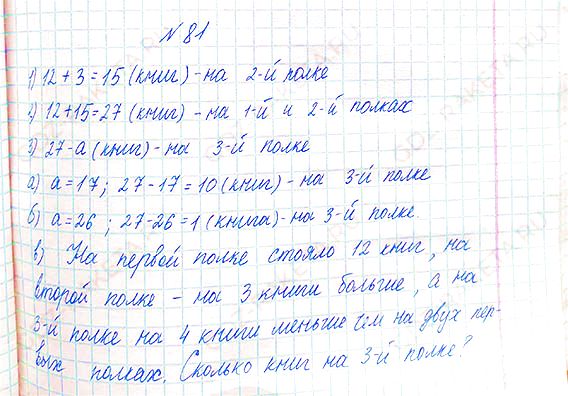 № 81
1) 12 + 3 = 15 (книг) - на 2-й полке
2) 12+15=27 (книг) - на 1-й и 2-й полках
3) 27-а (книг) - на 3-й полке
а) а=17; 27-17=10 (книг) - на 3-й полке
б) а=26; 27-26=1 (книга) - на 3-й полке.
в) На первой полке стояло 12 книг, на
второй полке - на 3 книги больше, а на
3-й полке на 4 книги меньше чем на двух пер-
вых полках. Сколько книг на 3-й полке?